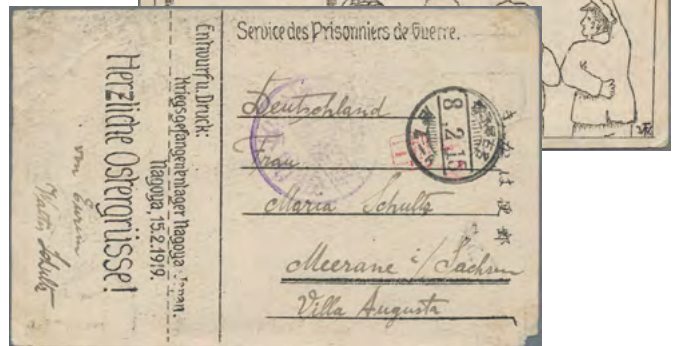 Service des Prisonniers de Guerre.
Deutschland
Frau
Maria Schultz
Meerane i/Sachsen
Villa Augusta
きかは便郵
8.2.15
Entwurf u. Druck:
Kriegsgefangenenlager Nagoya-Japan.
Nagoya, 15.2.1919.
Herzliche Ostergrüsse!
von Eurem
Walter Schultz